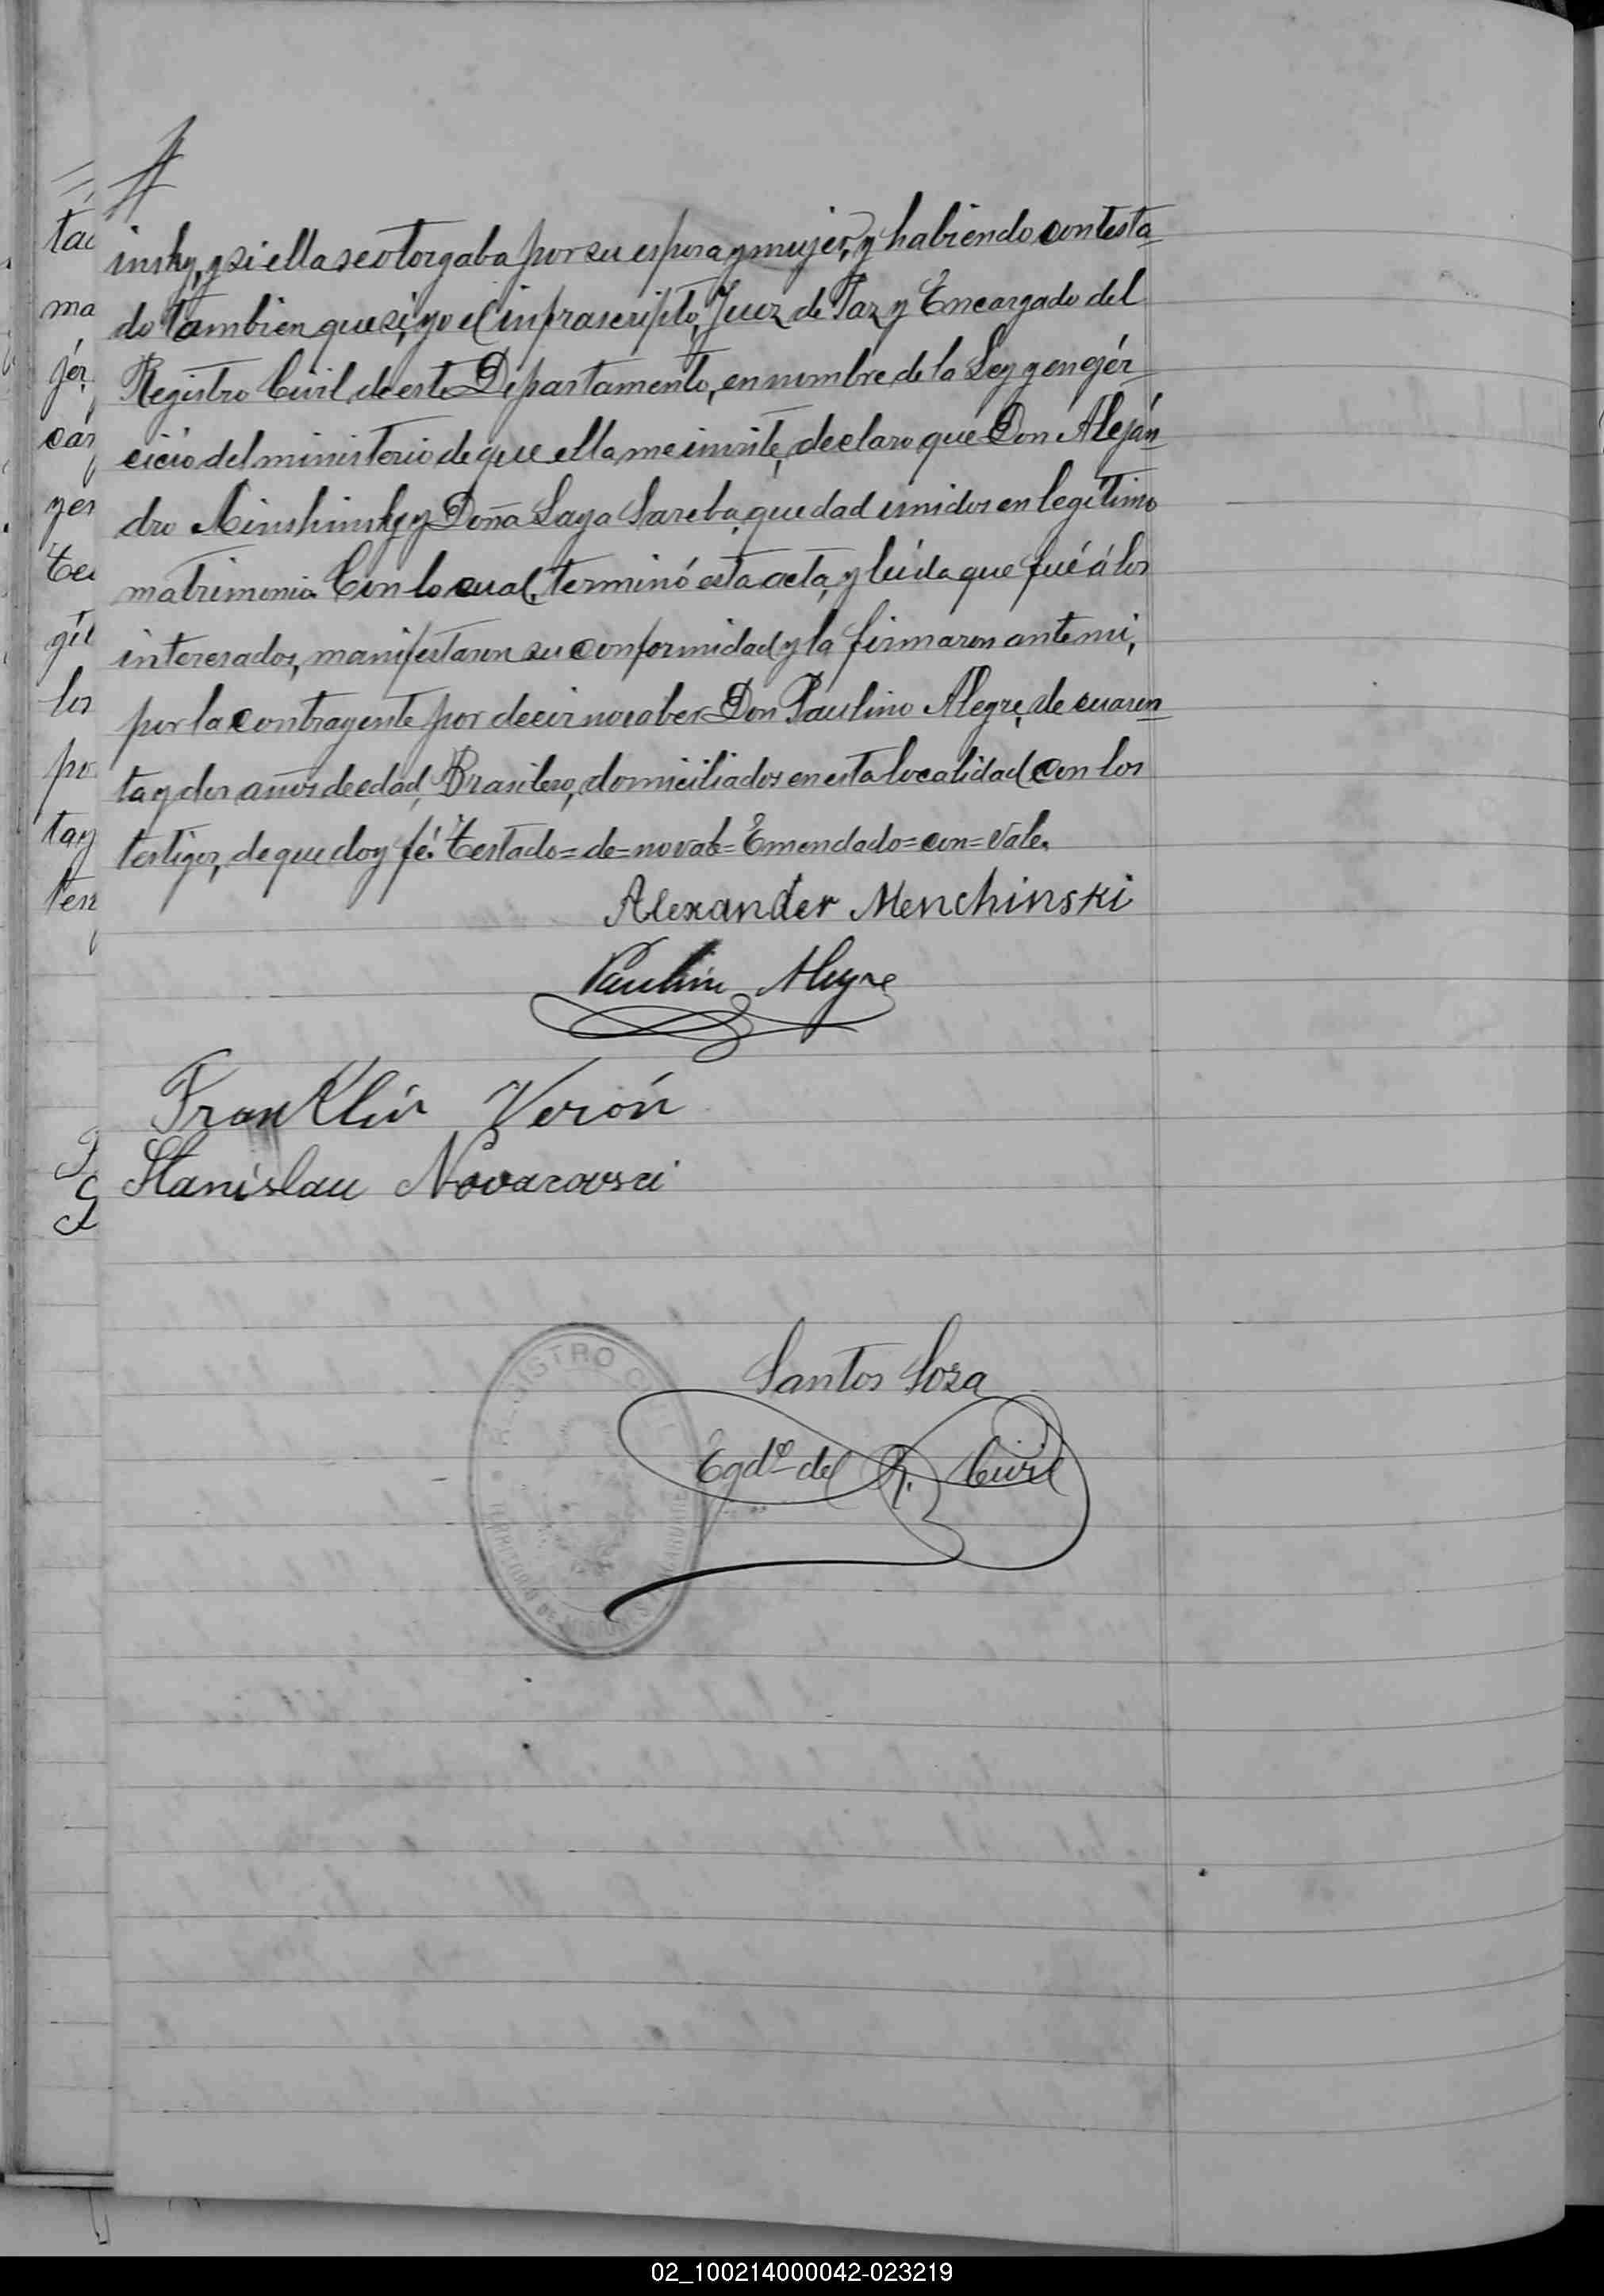 tac
ma
jér
cár
yer
Tes
gít
los
po
tay
ten
insky, y si ella se otorgaba por su esposa y mujer, y habiendo contesta-
do tambien que si, yo el infrascripto, Juez de Paz y Encargado del
Registro Civil, de este Departamento, en nombre de la Ley y en ejér-
cicio del ministerio de que ella me inviste, declaro que Don Aleján-
dro Minshinsky y Doña Saya Sareba, quedad unidos en legítimo
matrimonio. Con lo cual, terminó esta acta, y leída que fué á los
interesados, manifestaron su conformidad y la firmaron ante mi,
por la contrayente por decir no saber Don Paulino Alegre, de cuaren-
ta y dos años de edad, Brasilero, domiciliados en esta localidad con los
testigos, de que doy fé. Testado=de=no vale= Emendado=con=Vale.
Alexander Menchinski
Paulino Alegre
Franklin Verón
Stanislau Novarowsci
Santos Sosa
Egdo del R. Civil
REGISTRO CIVIL
TERRITORIO DE MISIONES
02_100214000042-023219